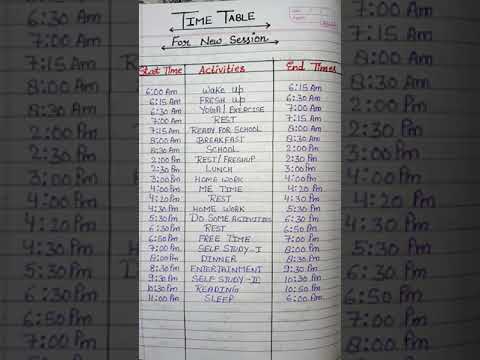 TIME TABLE
For New Session
Start Time Activities End Times
6:00 Am Wake up 6:15 Am
6:15 Am FRESH up 6:30 Am
6:30 Am YOGA/EXERCISE 7:00 Am
7:00 Am REST 7:15 Am
7:15 Am READY FOR SCHOOL 8:00 Am
8:00 Am BREAKFAST 8:30 Am
8:30 Am SCHOOL 2:00 Pm
2:00 Pm REST/FRESHUP 2:30 Pm
2:30 Pm LUNCH 3:00 Pm
3:00 Pm HOME WORK 4:00 Pm
4:00 Pm ME TIME 4:20 Pm
4:20 Pm REST 4:30 Pm
4:30 Pm HOME WORK 5:30 Pm
5:30 Pm DO SOME ACTIVITIES 6:30 Pm
6:30 Pm REST 6:50 Pm
6:50 Pm FREE TIME 7:00 Pm
7:00 Pm SELF STUDY-I 8:00 Pm
8:00 Pm DINNER 8:30 Pm
8:30 Pm ENTERTAINMENT 9:30 Pm
9:30 Pm SELF STUDY-II 10:30 Pm
10:30 Pm READING 10:50 Pm
11:00 Pm SLEEP 6:00 Am